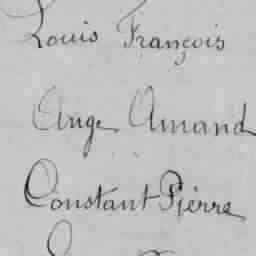 Louis François
Ange Amand
Constant Pierre